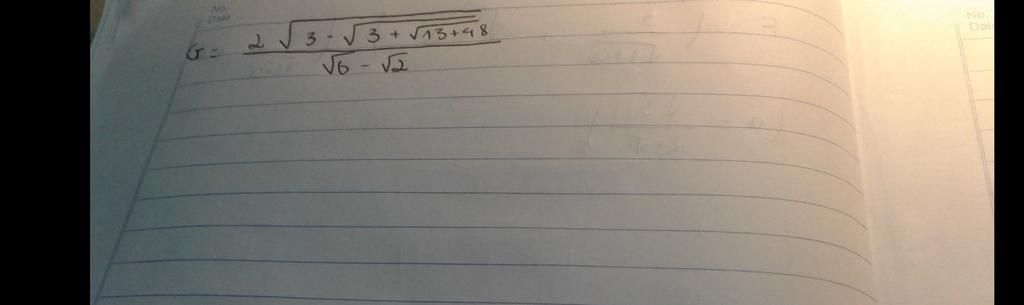 No.
Date
G = \frac{2\sqrt{3-\sqrt{3+\sqrt{13+48}}}}{\sqrt{6}-\sqrt{2}}
No.
Date